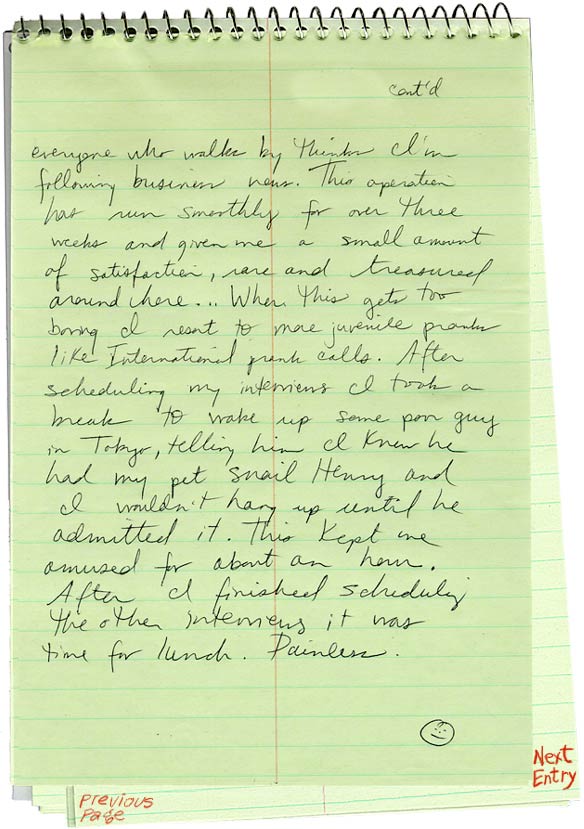 cont'd
everyone who walks by thinks I'm
following business news. This operation
has run smoothly for over three
weeks and given me a small amount
of satisfaction, rare and treasured
around here... When this gets too
boring I resort to more juvenile pranks
like International prank calls. After
scheduling my interviews I took a
break to wake up some poor guy
in Tokyo, telling him I knew he
had my pet snail Henry and
I wouldn't hang up until he
admitted it. This kept me
amused for about an hour.
After I finished scheduling
the other interviews it was
time for lunch. Painless.
Next
Entry
Previous
Page